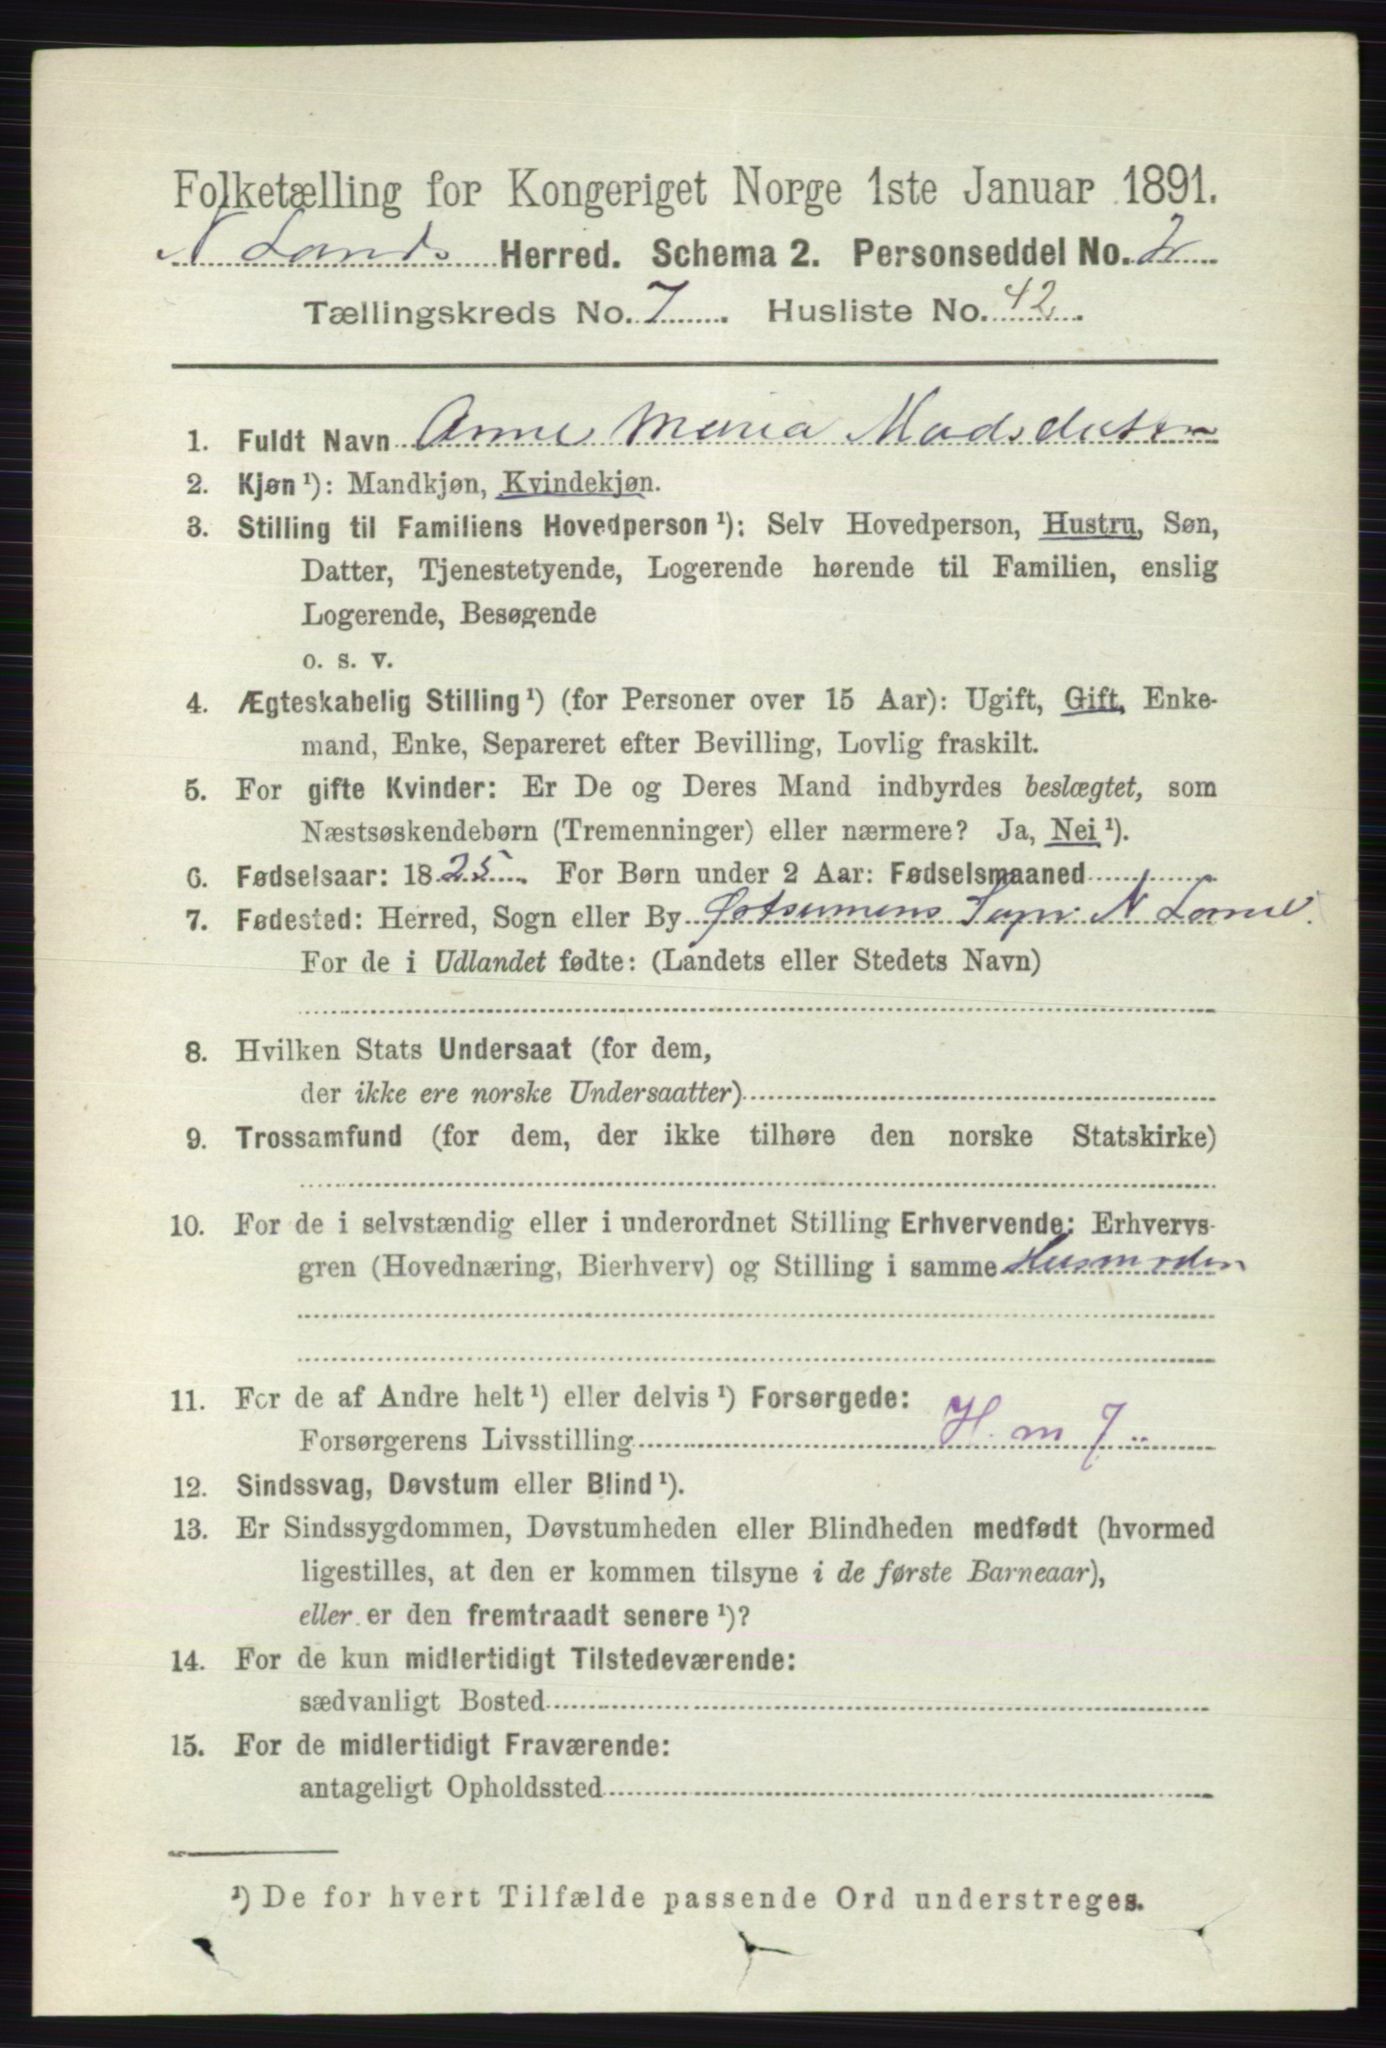 Folketælling for Kongeriget Norge 1ste Januar 1891.
N Lands Herred. Schema 2. Personseddel No. 2
Tællingskreds No. 7. Husliste No. 42.
1. Fuldt Navn Anne Maria Madsdatter
2. Kjøn ¹): Mandkjøn, Kvindekjøn.
3. Stilling til Familiens Hovedperson ¹): Selv Hovedperson, Hustru, Søn,
Datter, Tjenestetyende, Logerende hørende til Familien, enslig
Logerende, Besøgende
o. s. v.
4. Ægteskabelig Stilling ¹) (for Personer over 15 Aar): Ugift, Gift, Enke-
mand, Enke, Separeret efter Bevilling, Lovlig fraskilt.
5. For gifte Kvinder: Er De og Deres Mand indbyrdes beslægtet, som
Næstsøskendebørn (Tremenninger) eller nærmere? Ja, Nei ¹).
6. Fødselsaar: 1825. For Børn under 2 Aar: Fødselsmaaned
7. Fødested: Herred, Sogn eller By Sogn N Land
For de i Udlandet fødte: (Landets eller Stedets Navn)
8. Hvilken Stats Undersaat (for dem,
der ikke ere norske Undersaatter)
9. Trossamfund (for dem, der ikke tilhøre den norske Statskirke)
10. For de i selvstændig eller i underordnet Stilling Erhvervende: Erhvervs-
gren (Hovednæring, Bierhverv) og Stilling i samme Husmoder
11. For de af Andre helt ¹) eller delvis ¹) Forsørgede:
Forsørgerens Livsstilling H. m 7
12. Sindssvag, Døvstum eller Blind ¹).
13. Er Sindssygdommen, Døvstumheden eller Blindheden medfødt (hvormed
ligestilles, at den er kommen tilsyne i de første Barneaar),
eller er den fremtraadt senere ¹)?
14. For de kun midlertidigt Tilstedeværende:
sædvanligt Bosted
15. For de midlertidigt Fraværende:
antageligt Opholdssted
¹) De for hvert Tilfælde passende Ord understreges.